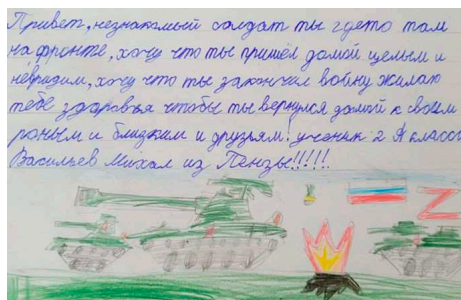 Привет, незнакомый солдат ты где то там
на фронте, хочу что ты пришёл домой целым и
невридим, хочу что ты закончил войну жилаю
тебе здоровья чтобы ты вернулся домой к своим
роным и близким и друзьям! ученик 2 Я класса
Васильев Михаил из Пензы!!!!!
Z